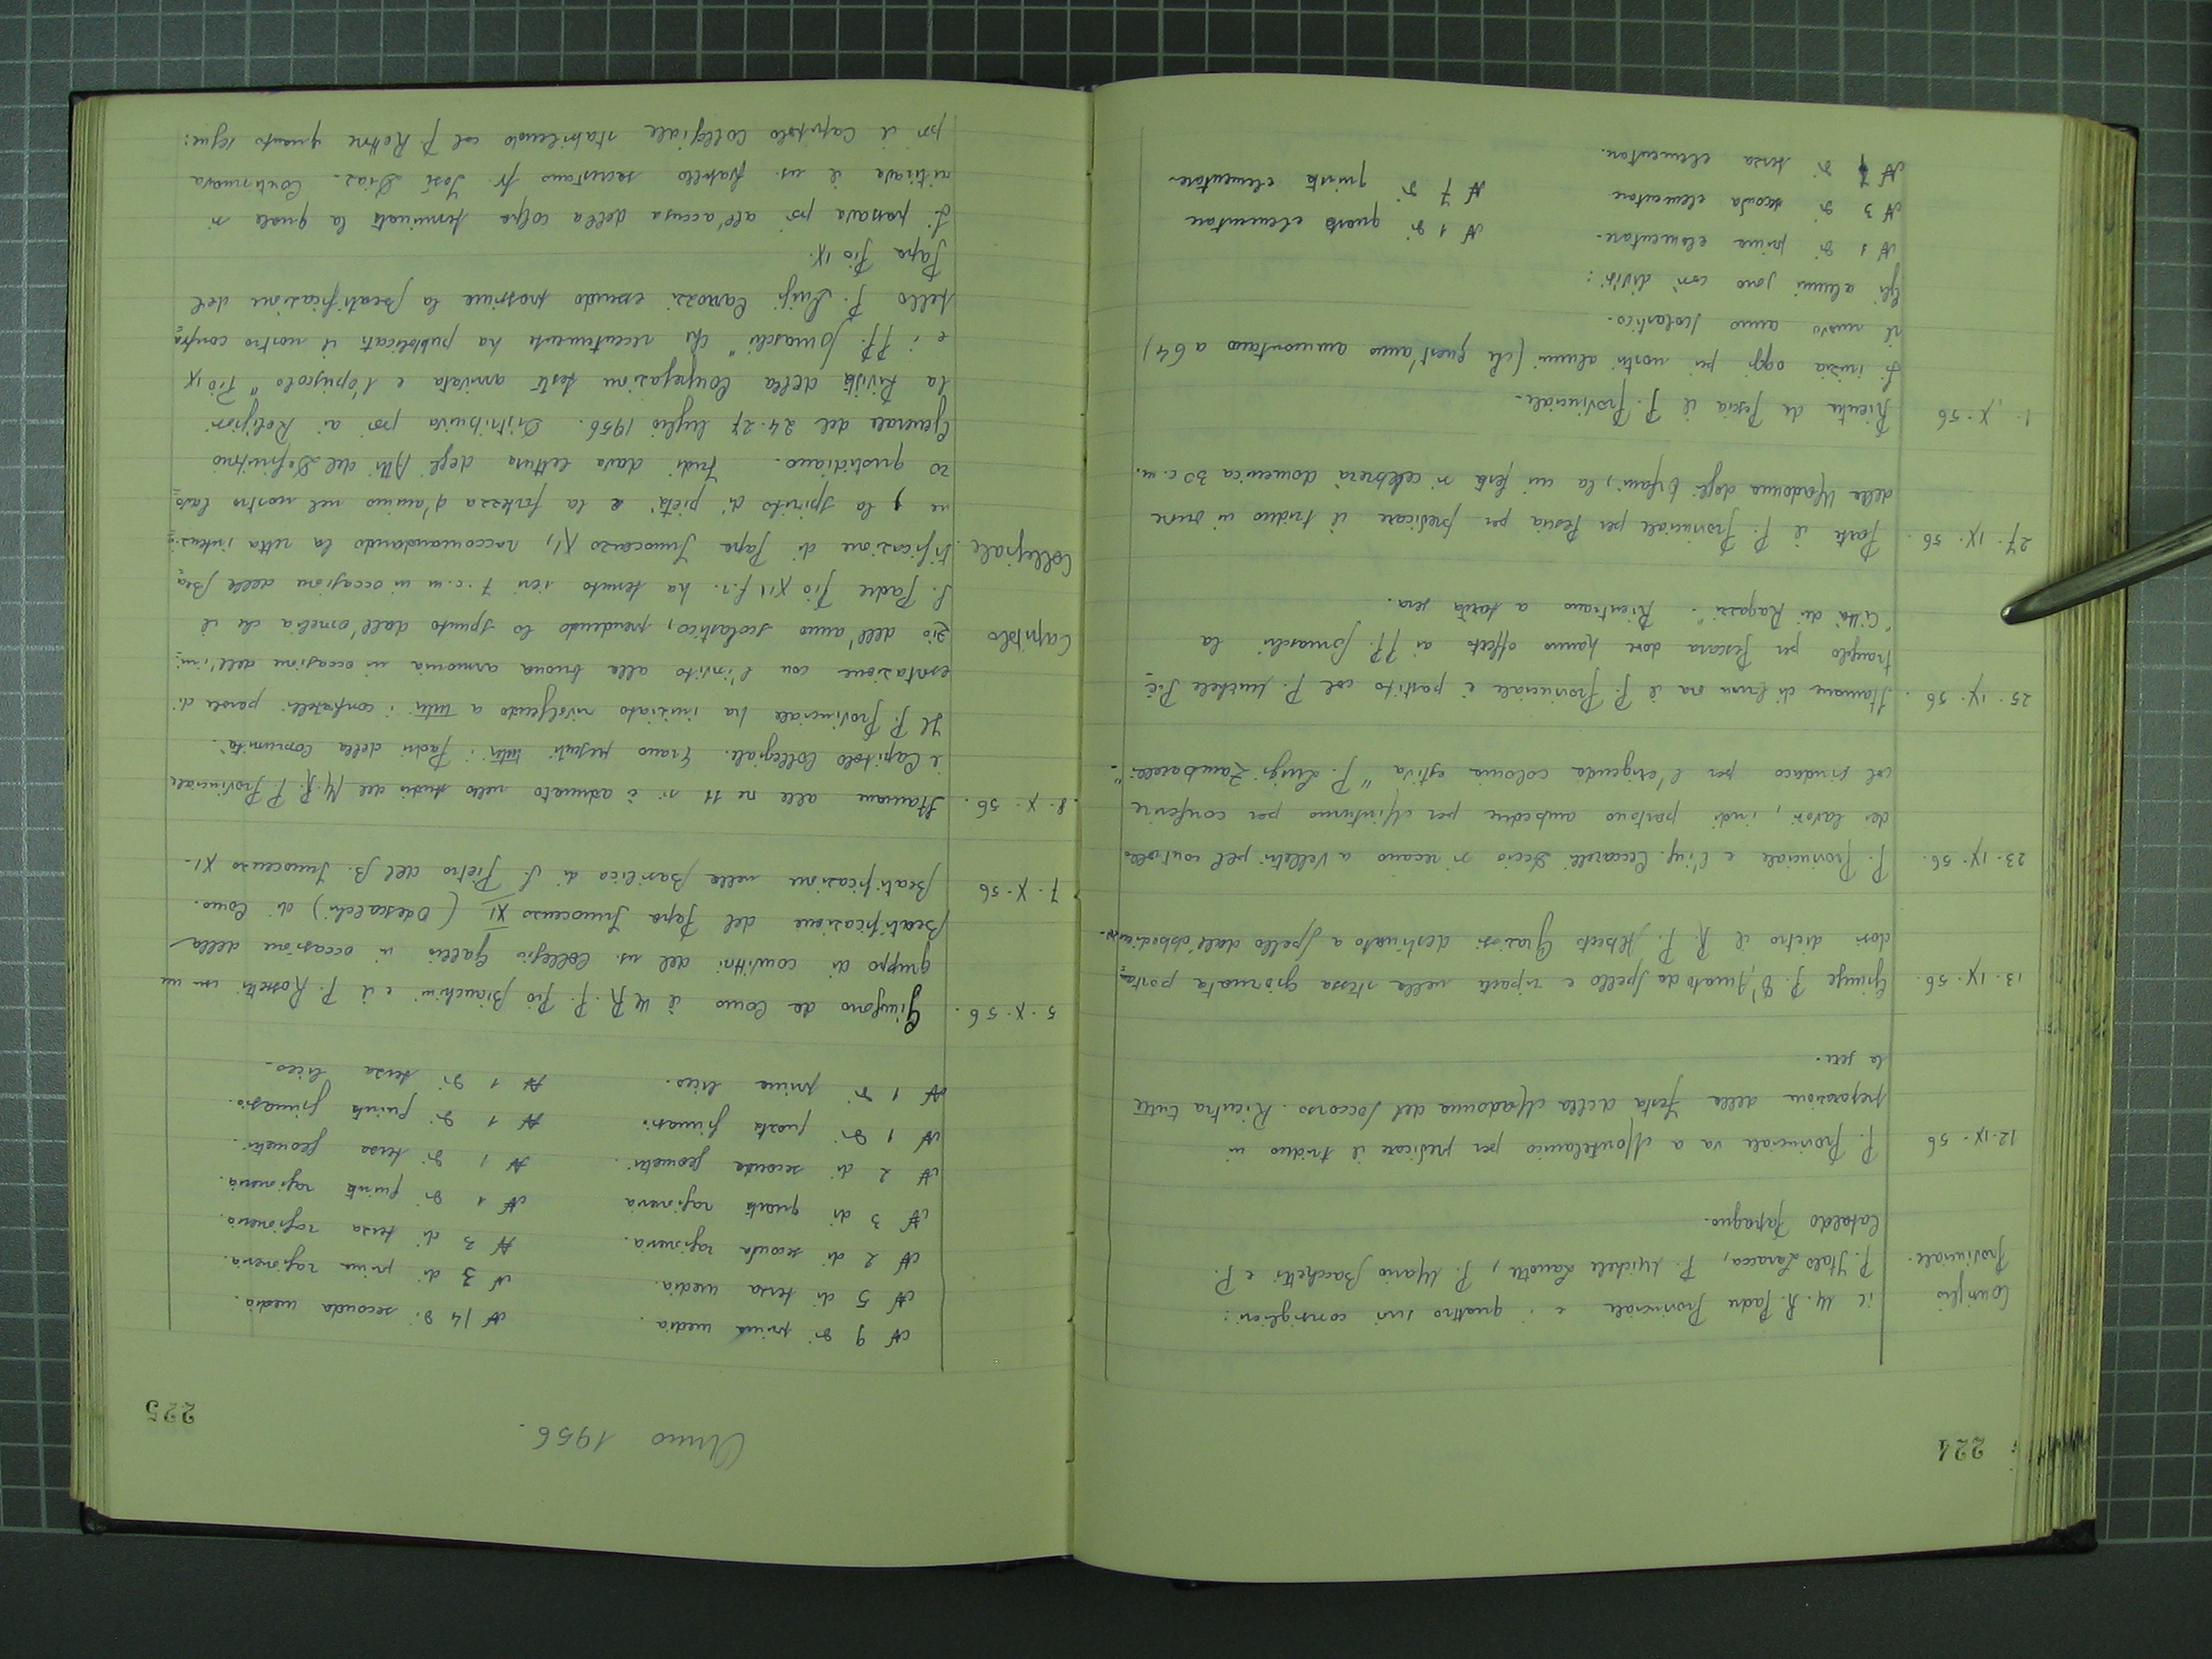 224
Consiglio il M. R. Padre Provinciale e i quattro suoi consiglieri:
Provinciale. P. Italo Laracca, P. Michele Lanotte, P. Mario Bacchetti e P.
Cataldo Papagno.
12.IX.56 P. Provinciale va a Montelanico per predicare il triduo in
preparazione della festa della Madonna del Soccorso. Rientra tutte
le sere.
13.IX.56. Giunge P. D'Amato da Spello e riparte nella stessa giornata portan=
dosi dietro il R. P. Alberto Graziosi destinato a Spello dall'obbedienza.
23.IX.56. P. Provinciale e l'ing. Ceccarelli Decio si recano a Velletri pel controllo
dei lavori, indi partono ambedue per Minturno per conferire
col sindaco per l'erigenda colonia estiva "P. Luigi Zambarelli".
25.IX.56. Stamane di buon ora il P. Provinciale è partito col P. Michele Pie=
trangelo per Pescara dove hanno offerto ai PP. Somaschi la
"Città dei Ragazzi". Rientrano a tarda sera.
27.IX.56. Parte il P. Provinciale per Pescia per predicare il triduo in onore
della Madonna degli Orfani, la cui festa si celebrerà domenica 30 c.m.
1.X.56 Rientra da Pescia il P. Provinciale.
Si inizia oggi pei nostri alunni (che quest'anno ammontano a 64)
il nuovo anno scolastico.
Gli alunni sono così divisi:
N 1 di prima elementare. N 1 di quarta elementare
N 3 di seconda elementare N 7 di quinta elementare
N 7 di terza elementare.
Anno 1956.
225
N 9 di prima media. N 14 di seconda media.
N 5 di terza media. N 3 di prima ragioneria.
N 2 di seconda ragioneria. N 3 di terza ragioneria.
N 3 di quarta ragioneria N 1 di quinta ragioneria.
N 2 di seconda geometri. N 1 di terza geometri.
N 1 di quarta ginnasio. N 1 di quinta ginnasio.
N 1 di prima liceo. N 1 di terza liceo.
5.X.56. Giungono da Como il M. R. P. Pio Bianchini e il P. Rossetti con un
gruppo di convittori del ns. Collegio Gallio in occasione della
beatificazione del Papa Innocenzo XI (Odescalchi) di Como.
7.X.56 Beatificazione nella Basilica di S. Pietro del B. Innocenzo XI.
8.X.56. Stamane alle ore 11 si è adunato nello studio del M. R. P. Provinciale
il Capitolo Collegiale. Erano presenti tutti i Padri della Comunità.
Il P. Provinciale ha iniziato rivolgendo a tutti i confratelli parole di
esortazione con l'invito alla buona armonia in occasione dell'ini=
Capitolo zio dell'anno scolastico, prendendo lo spunto dall'omelia che il
S. Padre Pio XII f.r. ha tenuto ieri 7 c.m. in occasione della Bea=
Collegiale. tificazione di Papa Innocenzo XI, raccomandando la retta intenzio=
ne, lo spirito di pietà e la fortezza d'animo nel nostro lavo=
ro quotidiano. Indi dava lettura degli Atti del Definitorio
Generale del 24-27 luglio 1956. Distribuiva poi ai Religiosi
la Rivista della Congregazione testè arrivata e l'opuscolo "Pio IX
e i PP. Somaschi" che recentemente ha pubblicati il nostro confra=
tello P. Luigi Carozzi essendo prossima la beatificazione del
Papa Pio IX.
Si passava poi all'accusa della colpa terminata la quale si
ritirava il ns. fratello sacrestano fr. José Diaz. Continuava
poi il Capitolo Collegiale stabilendo col P. Rettore quanto segue: